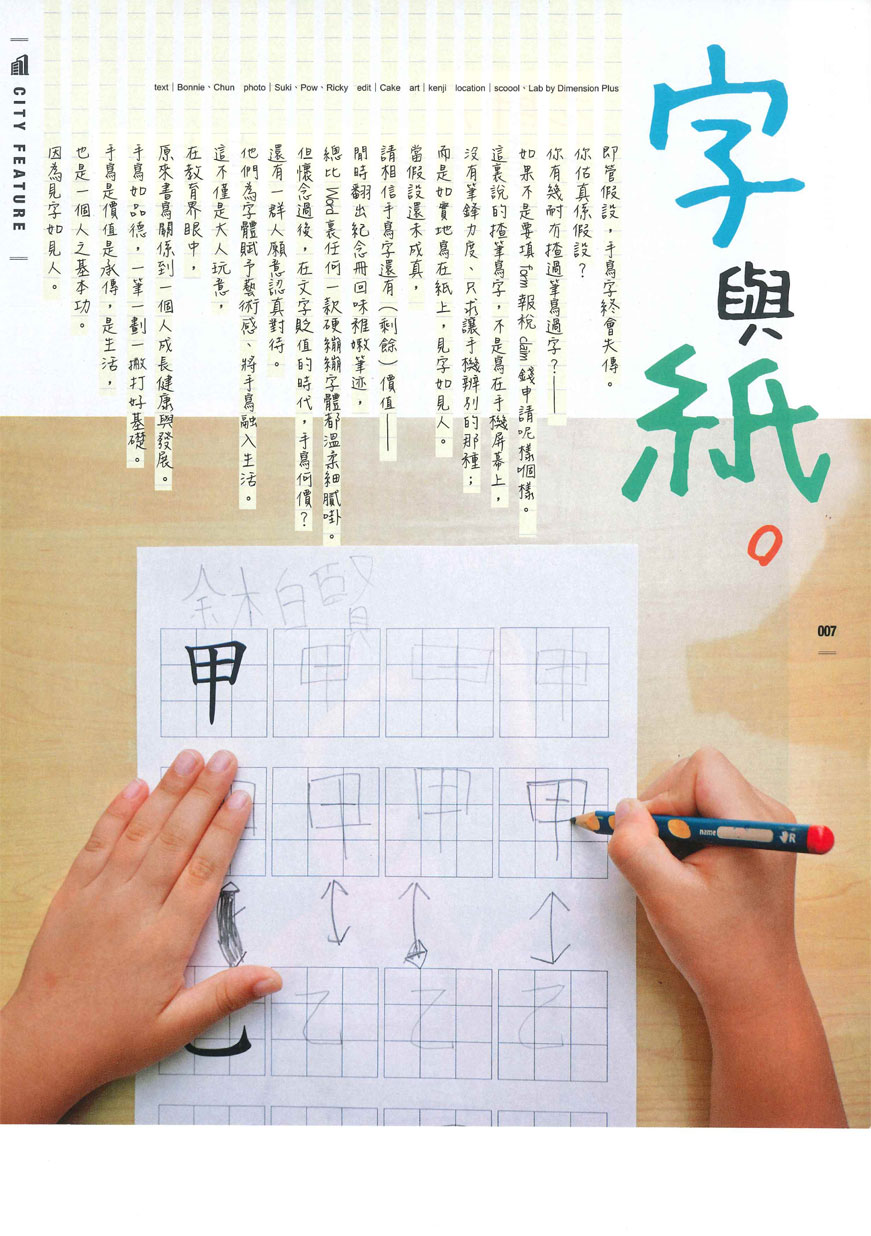 CITY FEATURE
text｜Bonnie、Chun photo｜Suki、Pow、Ricky edit｜Cake art｜kenji location｜scoool、Lab by Dimension Plus
字
與
紙。
即管假設，手寫字終會失傳。
你估真係假設？
你有幾耐冇揸過筆寫過字？——
如果不是要填 form 報稅 claim 錢申請呢樣嗰樣。
這裏說的揸筆寫字，不是寫在手機屏幕上，
沒有筆鋒力度、只求讓手機辨別的那種；
而是如實地寫在紙上，見字如見人。
當假設還未成真，
請相信手寫字還有（剩餘）價值——
閒時翻出紀念冊回味稚嫩筆迹，
總比 Word 裏任何一款硬繃繃字體都溫柔細膩啩。
但懷念過後，在文字貶值的時代，手寫何價？
還有一群人願意認真對待。
他們為字體賦予藝術感、將手寫融入生活。
這不僅是大人玩意，
在教育界眼中，
原來書寫關係到一個人成長健康與發展。
手寫如品德，一筆一劃一撇打好基礎。
手寫是價值是承傳，是生活，
也是一個人之基本功。
因為見字如見人。
007
余柏賢
甲 甲 甲 甲
甲 甲 甲
乙 乙 乙
name
R